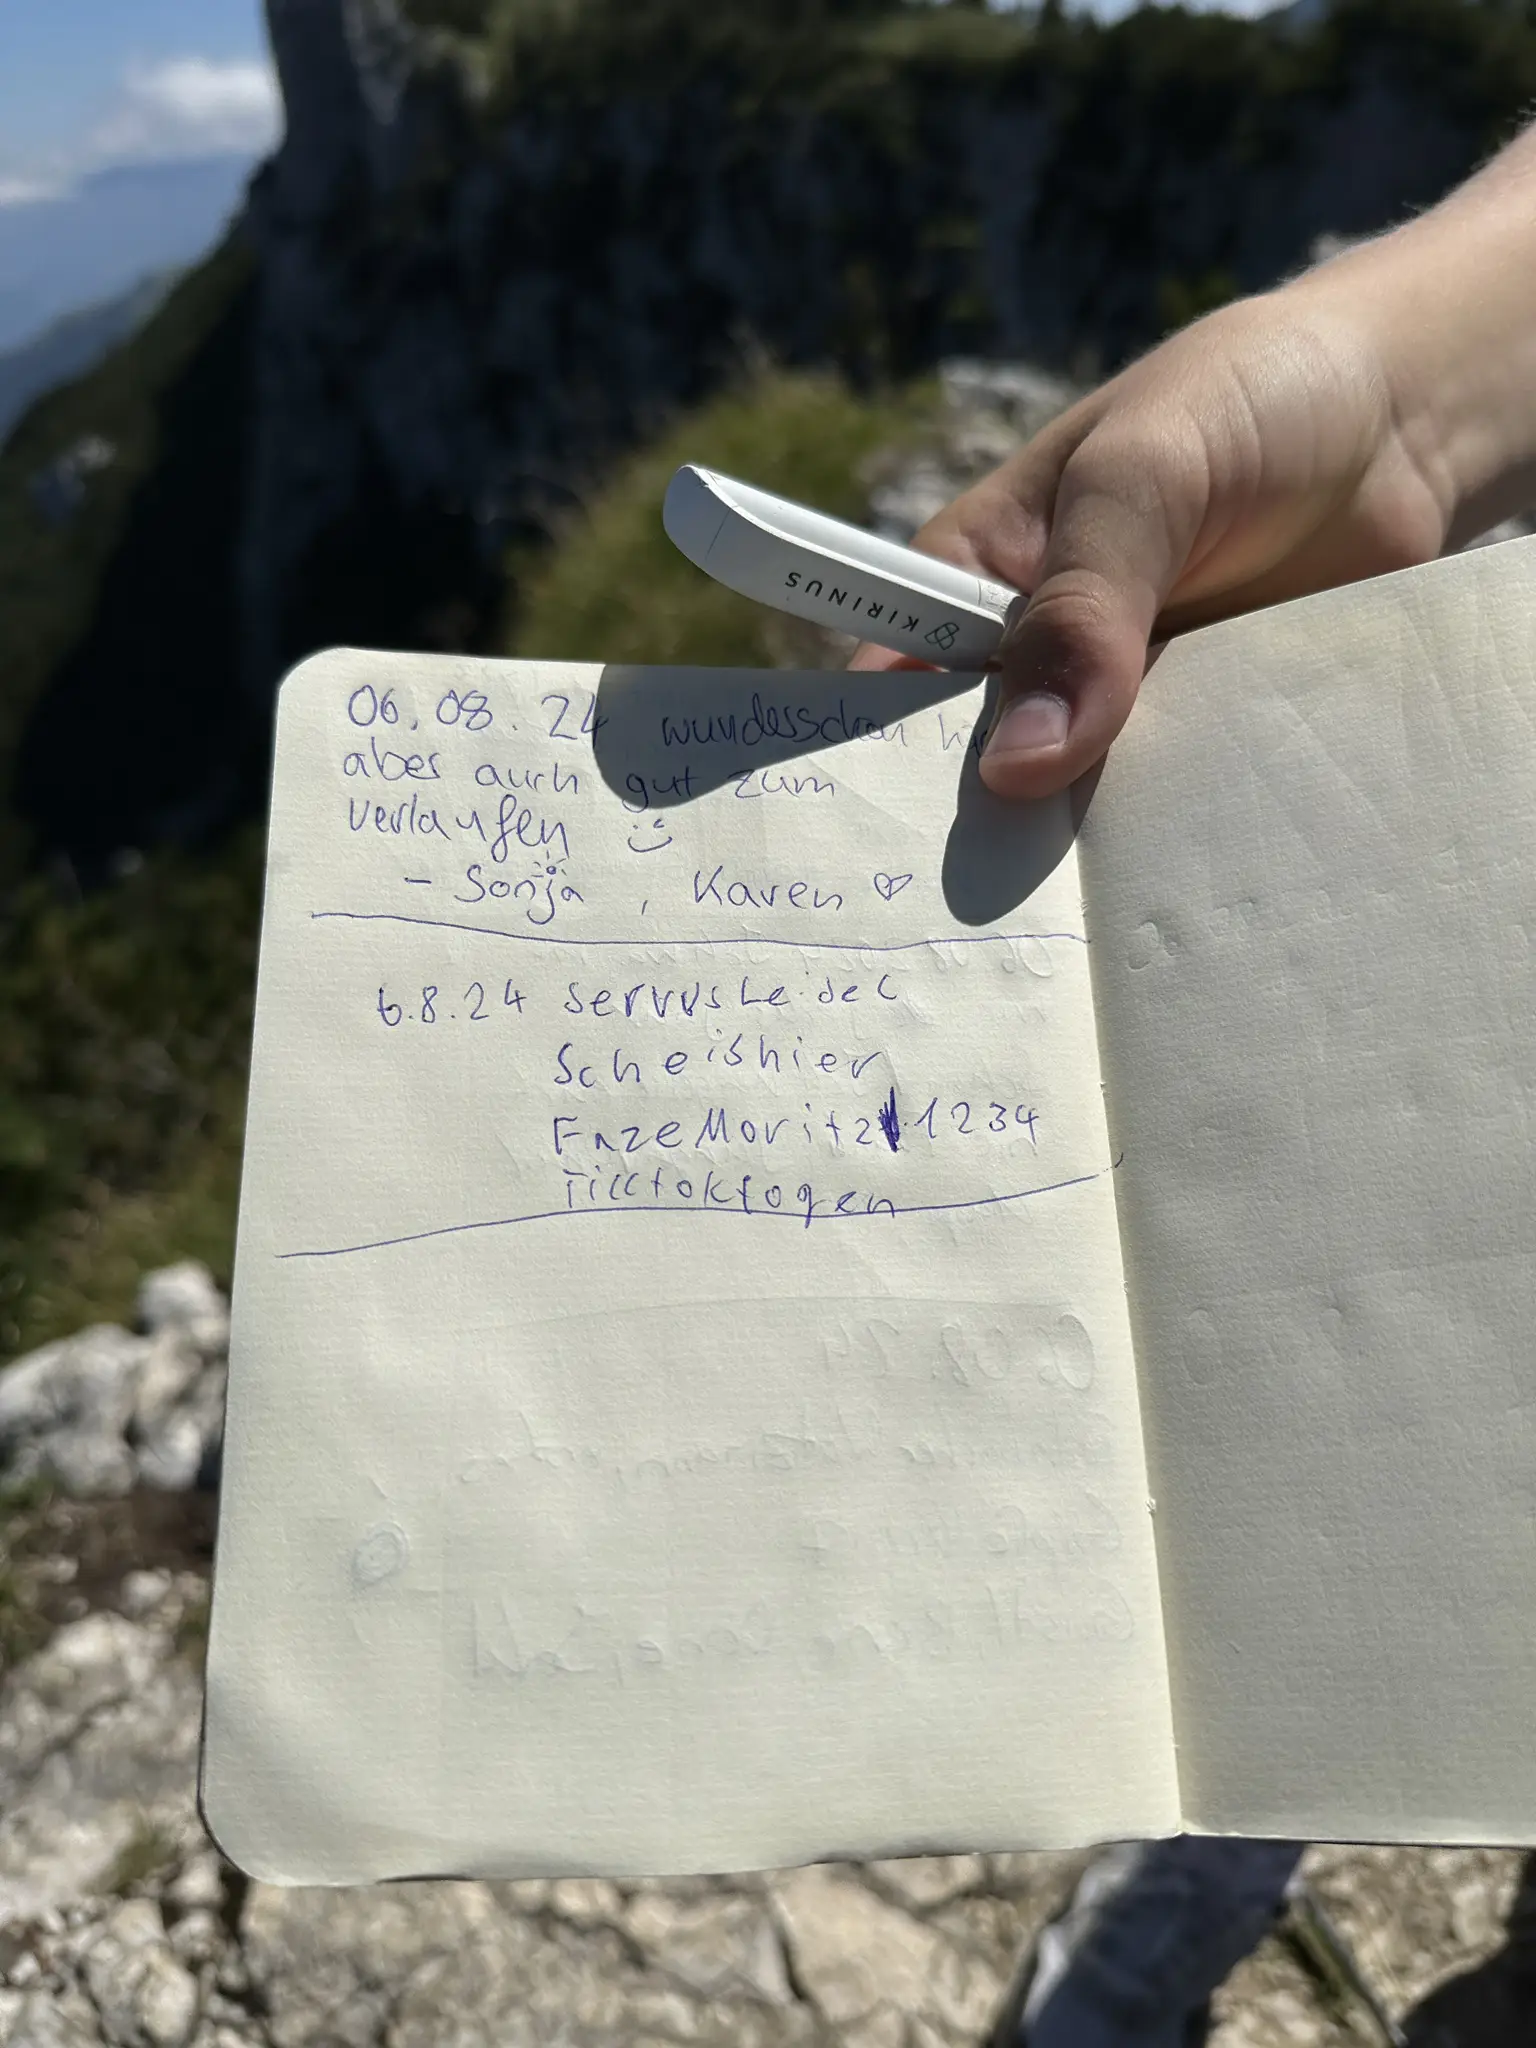 KIRINUS
06.08.24 wunderschön
aber auch gut zum
verlaufen
- Sonja, Karen ♡
6.8.24 Servus Leider
Scheishier
FazeMoritz 1234
Ticctokfogen